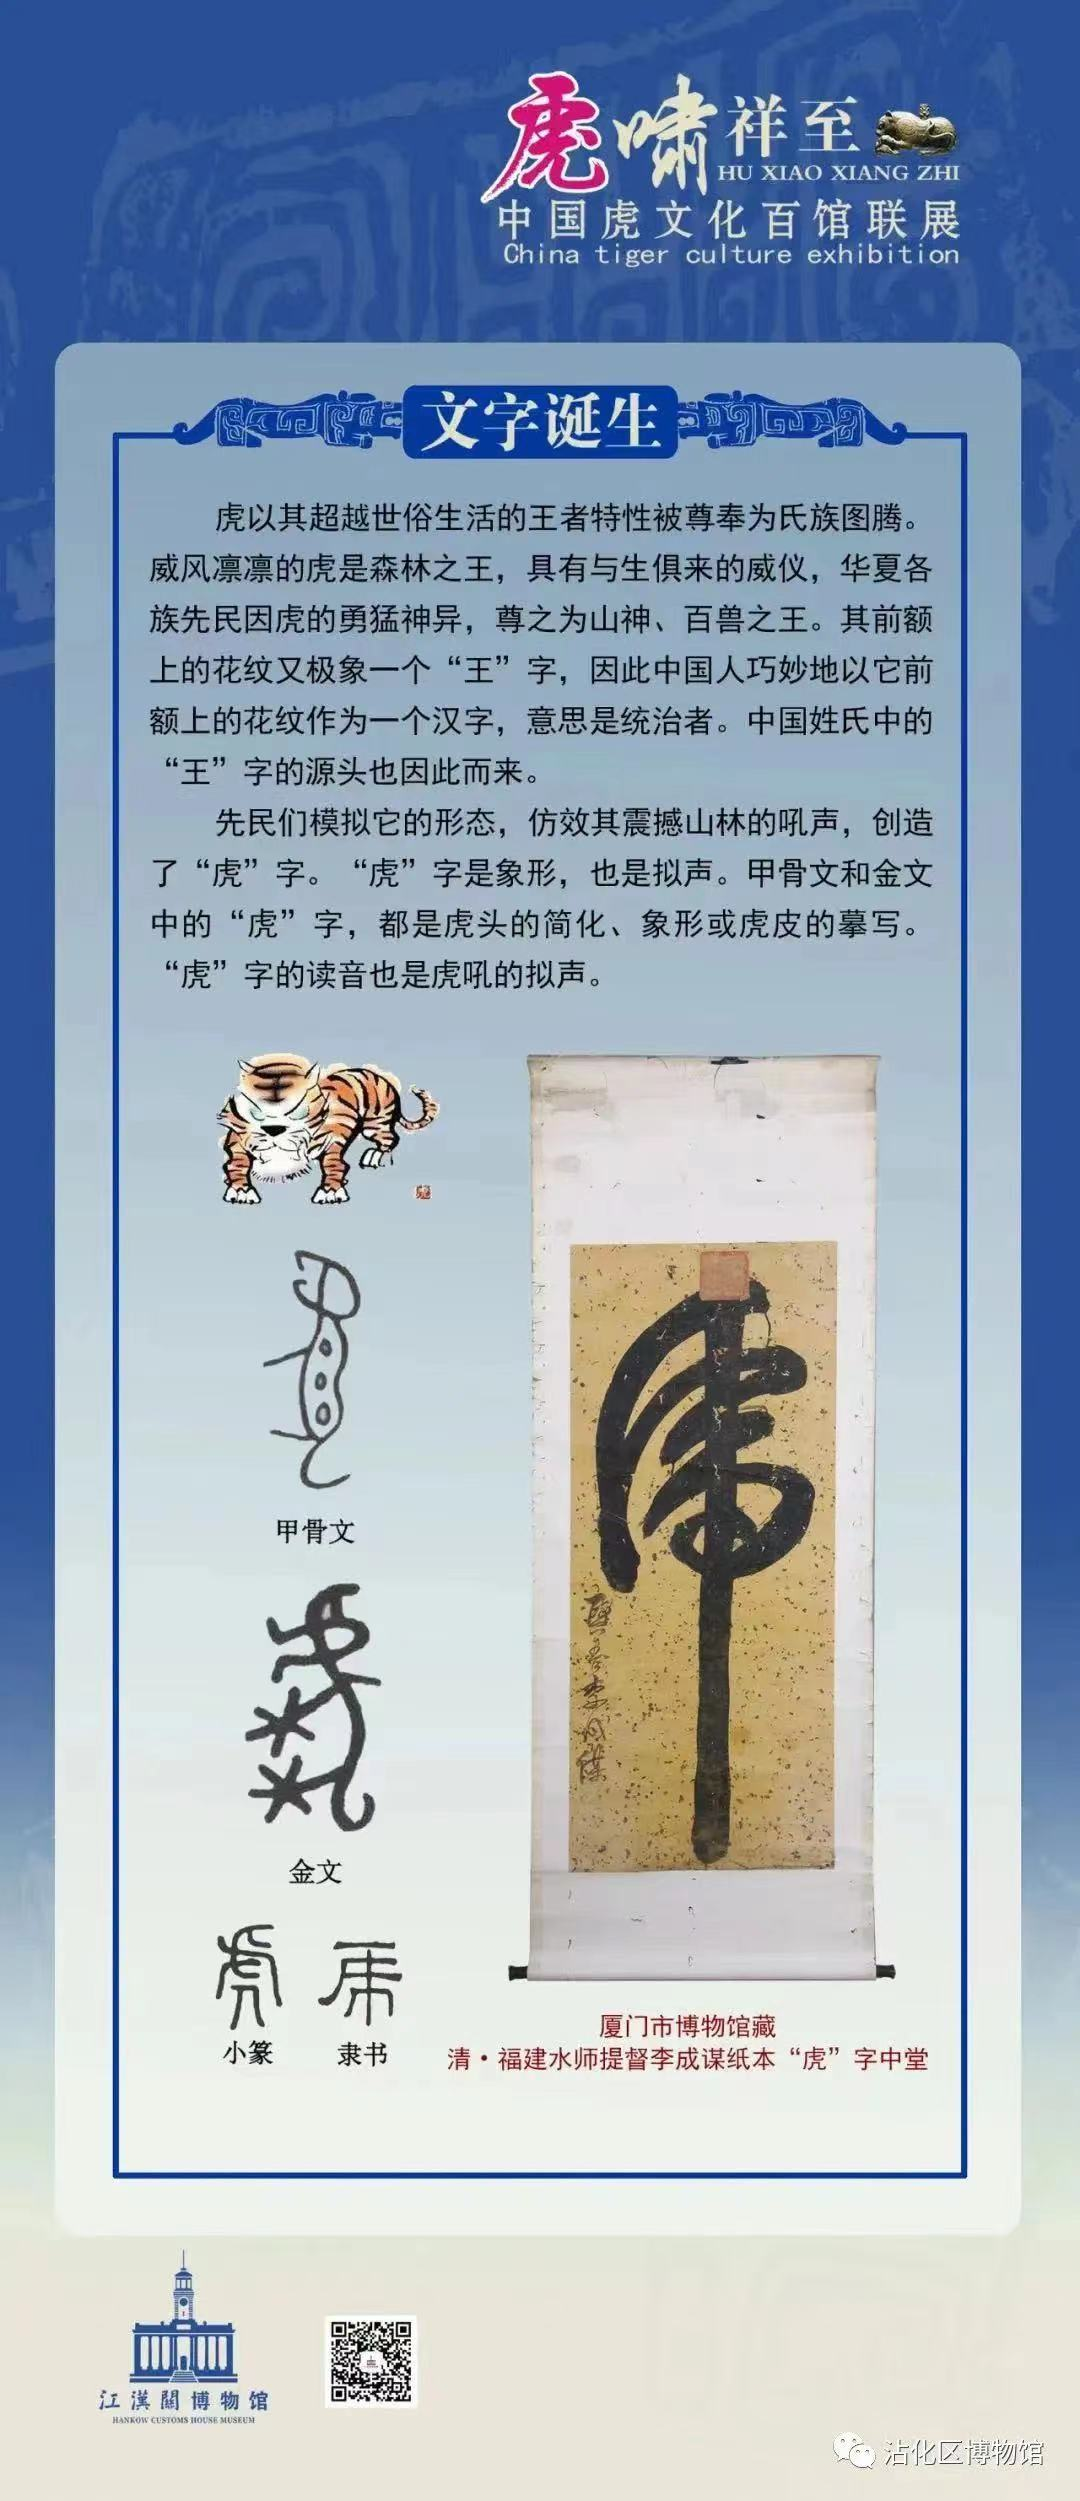 虎啸祥至
HU XIAO XIANG ZHI
中国虎文化百馆联展
China tiger culture exhibition
文字诞生
虎以其超越世俗生活的王者特性被尊奉为氏族图腾。
威风凛凛的虎是森林之王，具有与生俱来的威仪，华夏各
族先民因虎的勇猛神异，尊之为山神、百兽之王。其前额
上的花纹又极象一个“王”字，因此中国人巧妙地以它前
额上的花纹作为一个汉字，意思是统治者。中国姓氏中的
“王”字的源头也因此而来。
先民们模拟它的形态，仿效其震撼山林的吼声，创造
了“虎”字。“虎”字是象形，也是拟声。甲骨文和金文
中的“虎”字，都是虎头的简化、象形或虎皮的摹写。
“虎”字的读音也是虎吼的拟声。
王
甲骨文
金文
虎
虎
小篆
隶书
虎
厦门市博物馆藏
清·福建水师提督李成谋纸本“虎”字中堂
江漢關博物馆
HANKOW CUSTOMS HOUSE MUSEUM
沾化区博物馆